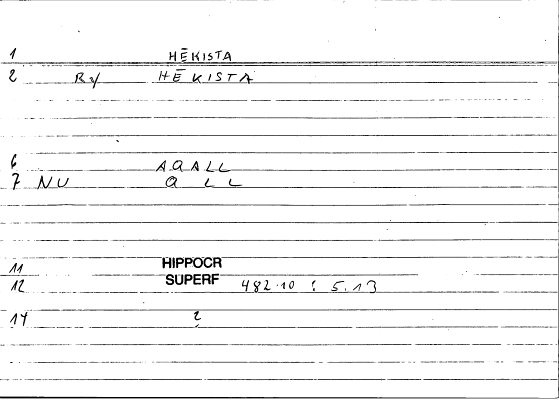 1 HĒKISTA
2 Ry HĒKISTA
6 AQALL
7 NU Q LL
11 HIPPOCR
12 SUPERF 482.10 : 5.13
14 2